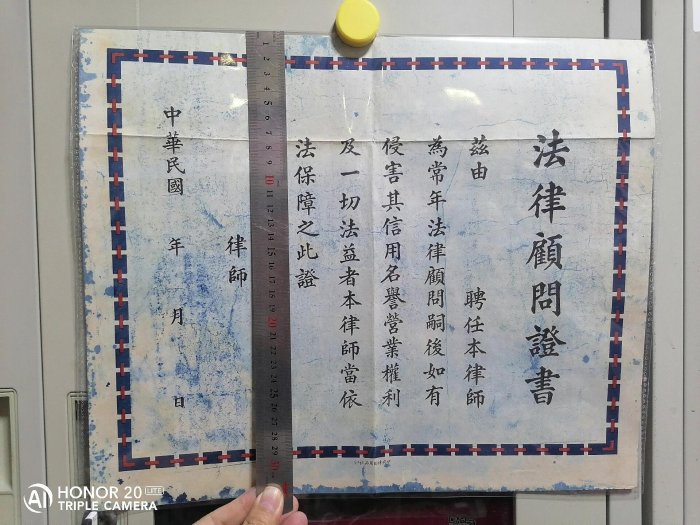 法律顧問證書
茲由 聘任本律師
為常年法律顧問嗣後如有
侵害其信用名譽營業權利
及一切法益者本律師當依
法保障之此證
律師
中華民國 年 月 日
1 2 3 4 5 6 7 8 9 10 11 12 13 14 15 16 17 18 19 20 21 22 23 24 25 26 27 28 29 30
HONOR 20 LITE
TRIPLE CAMERA